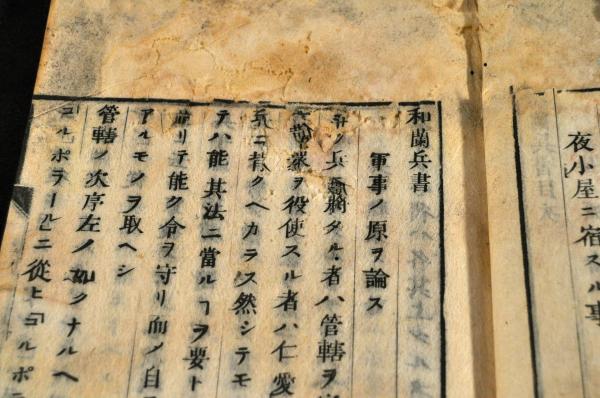 夜小屋ニ宿スル事
和蘭兵書
軍事ノ原ヲ論ス
兵 將タル者ハ管轄ヲ
衆ヲ役使スル者ハ仁愛
ニ クヘカラス然シテモ
テハ能其法ニ當ルヿヲ要ト
リテ能ク令ヲ守リ而ノ自
アルモノヲ取ヘシ
管轄ノ次序左ノ如クナルヘ
コルポラールニ從ヒコルポ